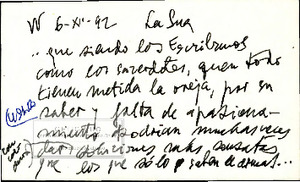 V 6-XII-92 La Sua
.. que siendo los Escribanos
como los sacerdotes, quen todo
tienen metida la oreja, por su
saber y falta de apasiona-
miento podrian muchas veces
dar soluciones más sensatas
que los que sólo saben de armas...